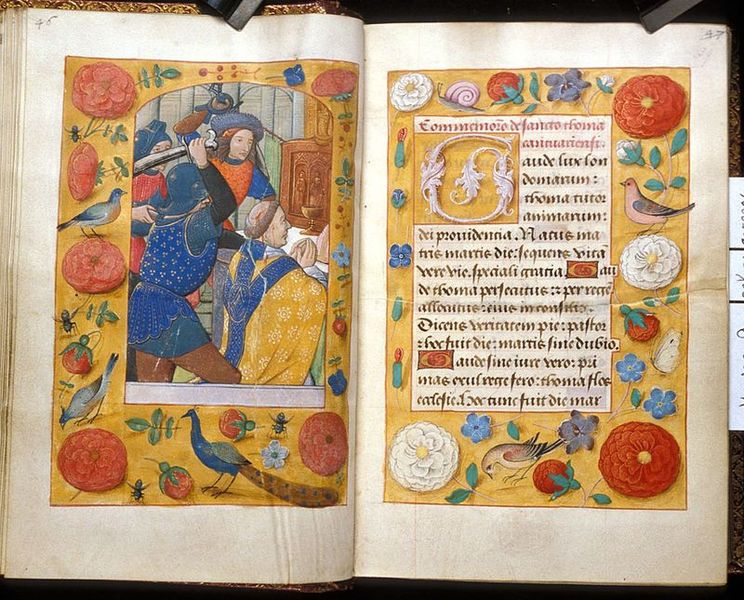 46
47
Commemoro͂ de sancto thoma
cantuariensi.
Gaude lux lon
domarum:
thoma tutor
animarum:
dei prouidentia. Natus ma
tris martis die: sequens vitā
vere vie. speciali gratia. Gau
de thoma persecutus: z per regē
allocutus: eius in consilio.
Dicens veritatem pie: pastor
z hoc fuit die: martis sine dubio.
Gaude sine iure vero: pri
mas exul rege fero: thoma flos
ecclesie. Hoc tunc fuit die mar